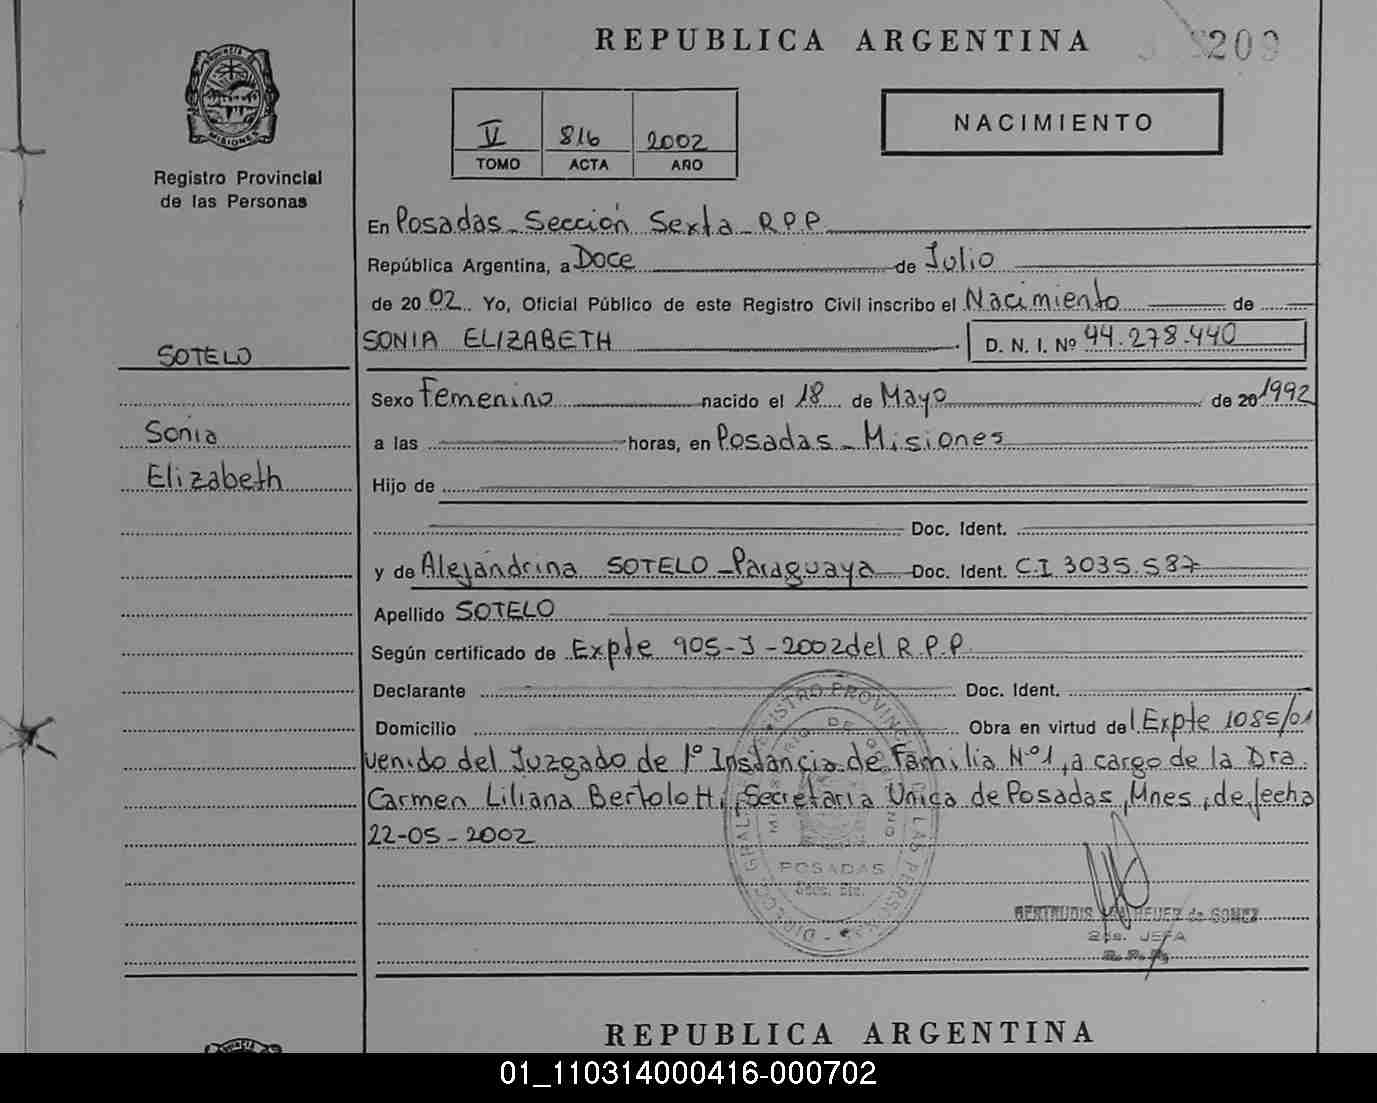 REPUBLICA ARGENTINA
209
PROVINCIA DE
MISIONES
Registro Provincial
de las Personas
V 816 2002
TOMO ACTA AÑO
NACIMIENTO
En Posadas - Sección Sexta - R.P.P.
República Argentina, a Doce de Julio
de 20 02 Yo, Oficial Público de este Registro Civil inscribo el Nacimiento de
SONIA ELIZABETH D. N. I. Nº 44.278.440
SOTELO
Sonia
Elizabeth
Sexo Femenino nacido el 18 de Mayo de 20 1992
a las horas, en Posadas - Misiones
Hijo de
Doc. Ident.
y de Alejandrina SOTELO - Paraguaya Doc. Ident. C.I 3035.587
Apellido SOTELO
Según certificado de Expte 905-J-2002 del R.P.P.
Declarante Doc. Ident.
Domicilio Obra en virtud del Expte 1085/01
venido del Juzgado de 1º Instancia de Familia Nº1, a cargo de la Dra.
Carmen Liliana Bertolotti, Secretaria Unica de Posadas, Mnes, de fecha
22-05-2002
REGISTRO PROVINCIAL DE LAS PERSONAS
MINISTERIO DE GOBIERNO
POSADAS
GERTRUDIS de GOMEZ
2da. JEFA
R.P.P.
REPUBLICA ARGENTINA
01_110314000416-000702